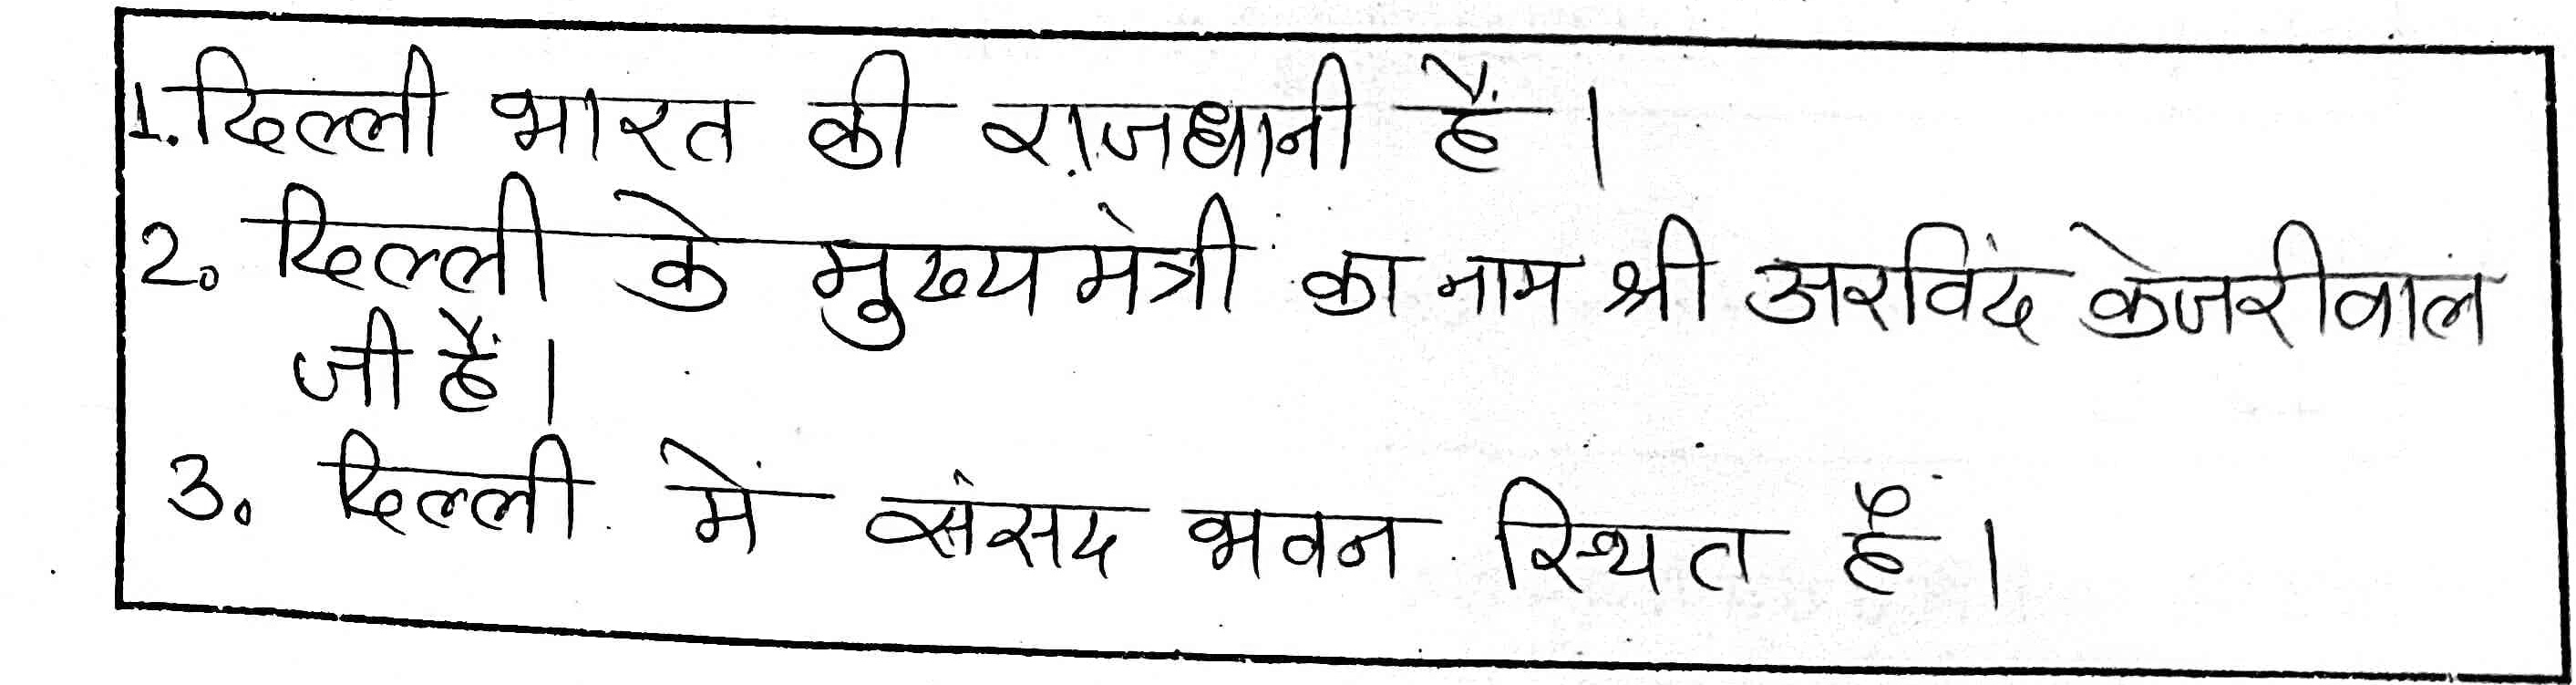 1. दिल्ली भारत की राजधानी हैं।
2. दिल्ली के मुख्यमंत्री का नाम श्री अरविंद केजरीवाल
जी हैं।
3. दिल्ली में संसद भवन स्थित हैं।